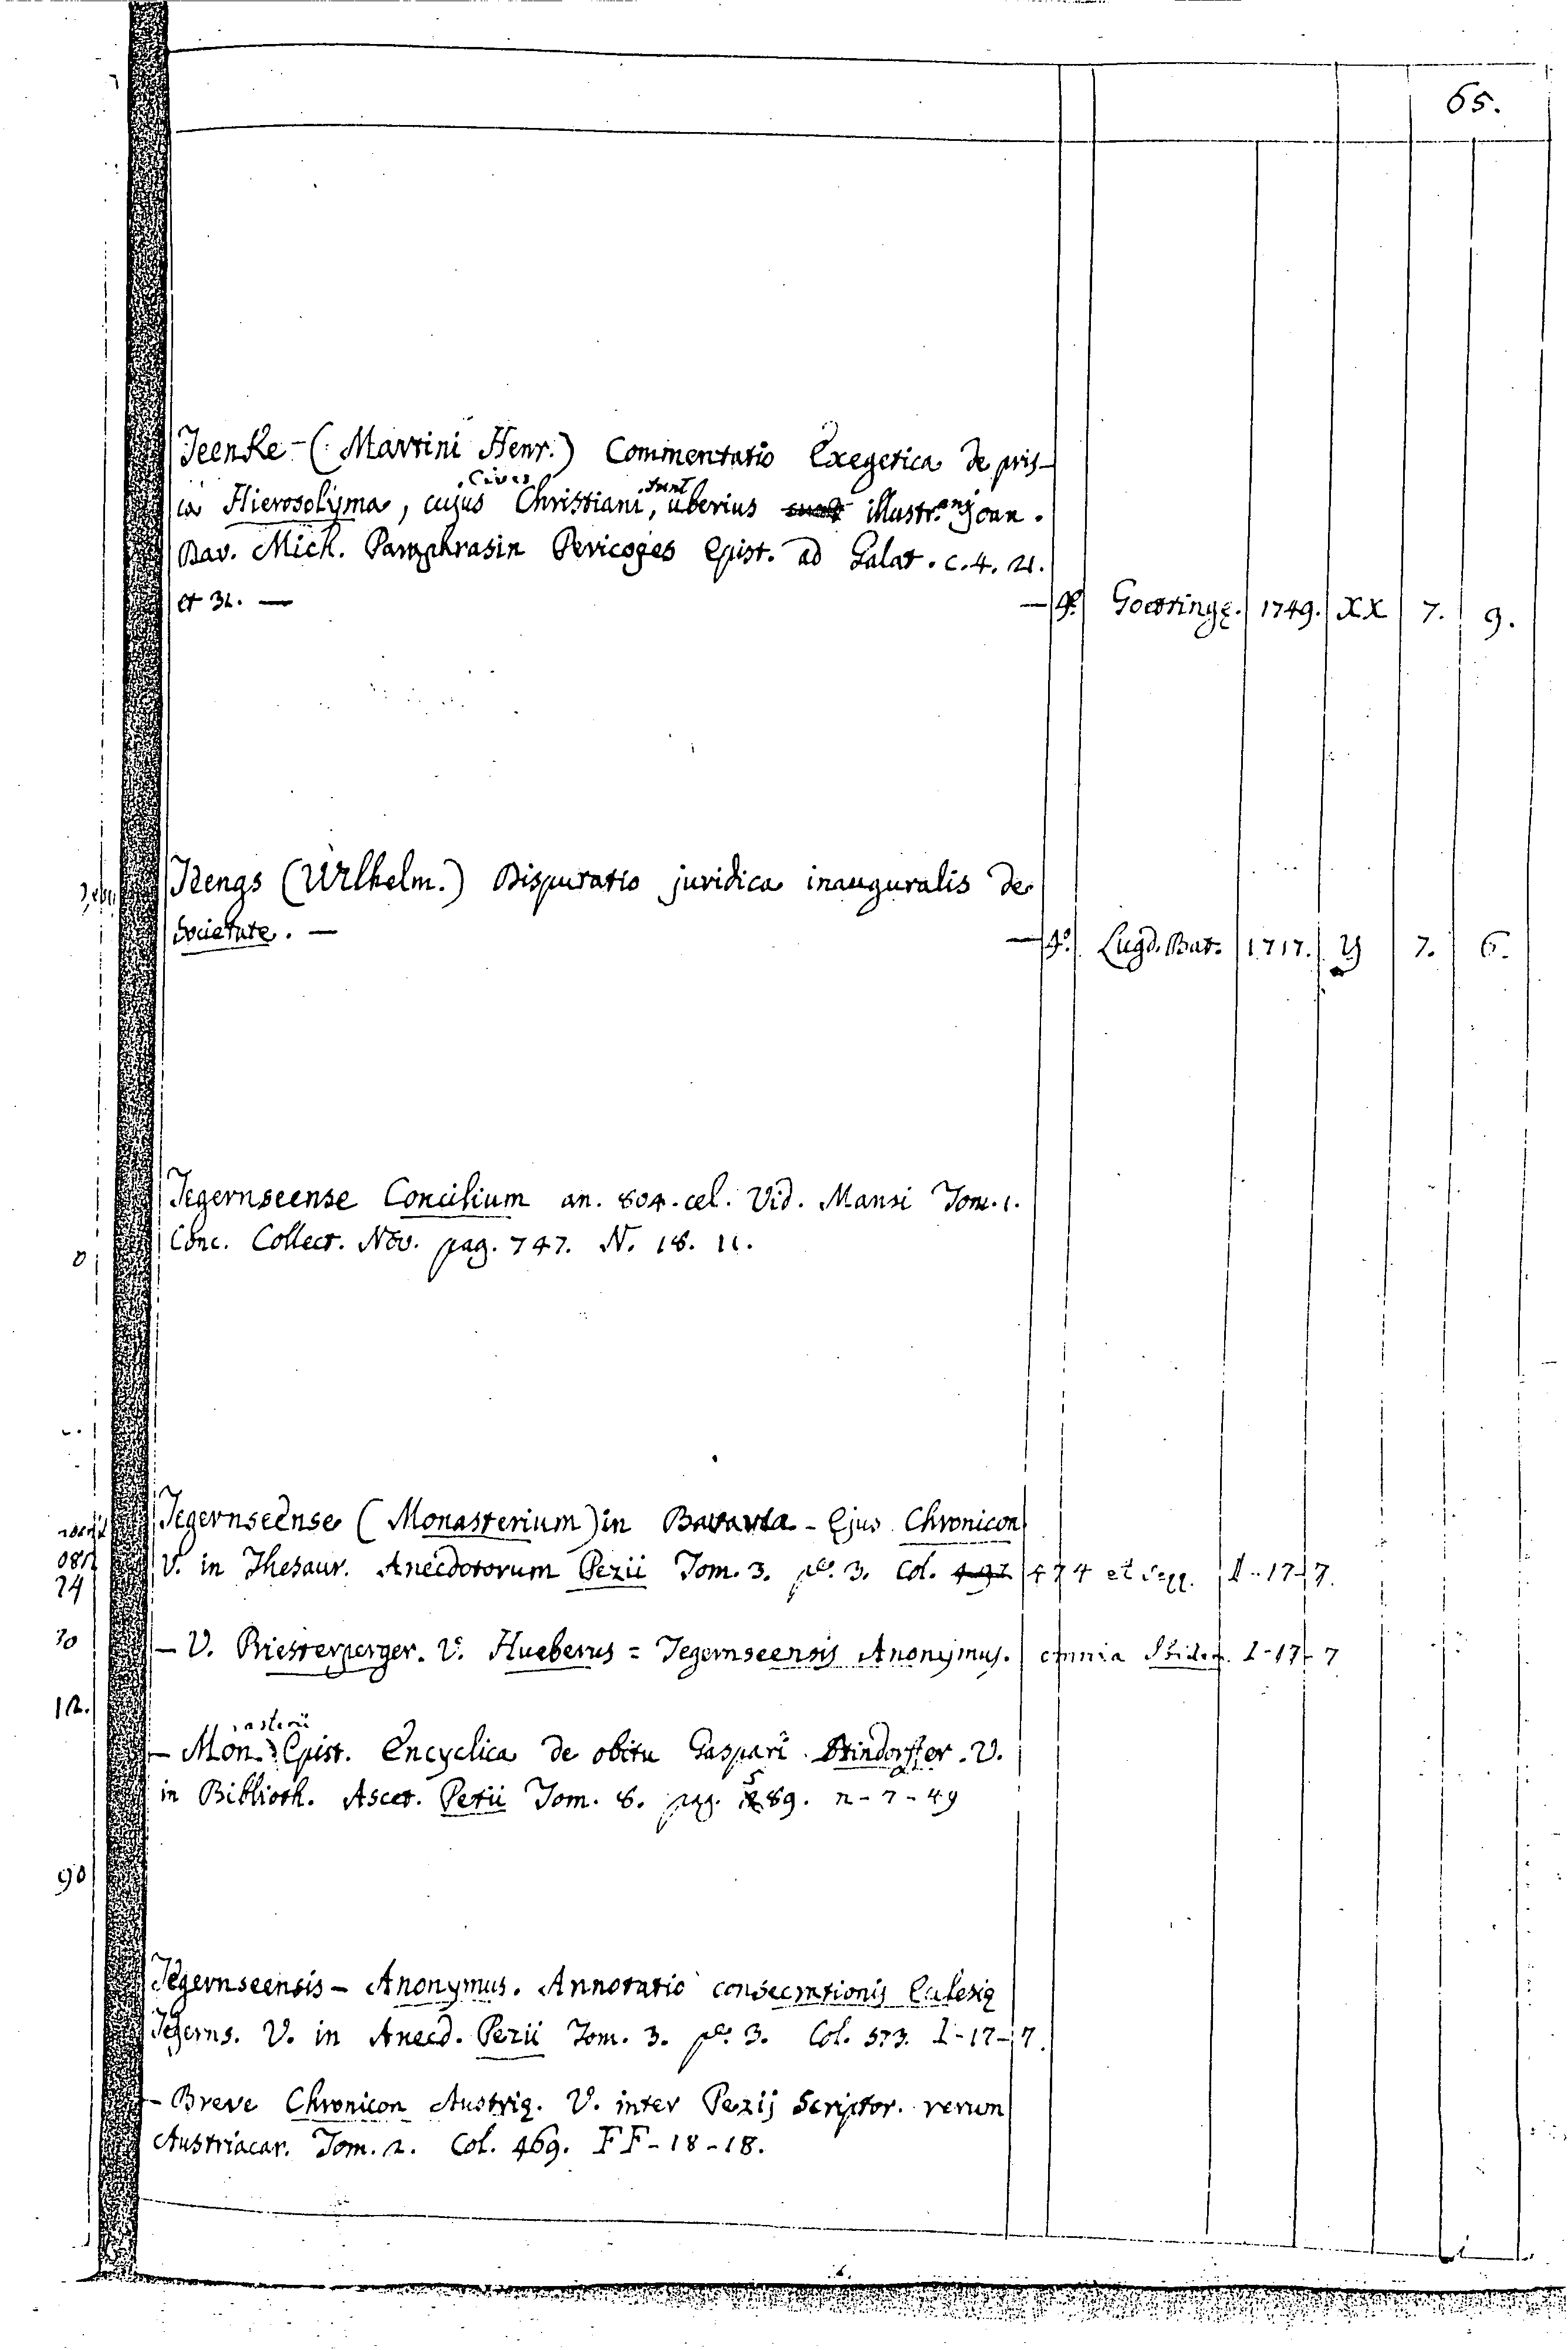 65.
Teenke - (Martini Henr.) Commentatio Exegetica de pris-
ca Hierosolyma, cujus Cives Christiani sunt, uberius illustr.ans Joan.
Dav. Mich. Paraphrasin Pericopes Epist. ad Galat. c. 4. 21.
et 31. — — 4º. Goettingę. 1749. XX 7. 9.
Tengs (Wilhelm.) Disputatio juridica inauguralis de
Societate. — — 4º. Lugd. Bat. 1717. Y 7. 6.
Tegernseense Concilium an. 804. cel. Vid. Mansi Tom. 1.
Conc. Collect. Nov. pag. 747. N. 18. 11.
Tegernseense (Monasterium) in Bavaria - Ejus Chronicon
V. in Thesaur. Anecdotorum Pezii Tom. 3. pe. 3. Col. 497 474 et seqq. I - 17 - 7.
- V. Priesterperger. V. Hueberus = Tegernseensis Anonymus. omnia Ibidem. I - 17 - 7
- Monasterii Epist. Encyclica de obitu Gaspari Aindorffer. V.
in Biblioth. Ascet. Petii Tom. 8. pag. 589. n - 7 - 49
Tegernseensis - Anonymus. Annotatio consecrationis Eclesię
Tegerns. V. in Anecd. Pezii Tom. 3. pe. 3. Col. 573. I - 17 - 7.
- Breve Chronicon Austrię. V. inter Pezij Scriptor. rerum
Austriacar. Tom. 2. Col. 469. FF - 18 - 18.